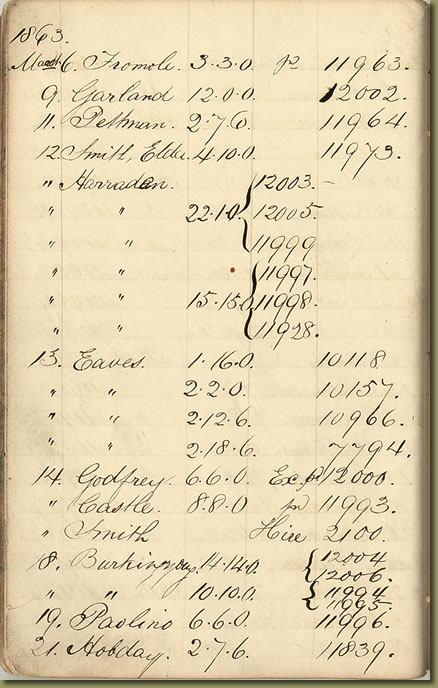 1863.
March 6. Fromole. 3.3.0 pr 11963.
9. Garland 12.0.0. 12002.
11. Peltman. 2.7.6. 11964.
12. Smith, Elder. 4.10.0. 11973.
" Harraden. 12003.-
" " 22.1.0. 12005.
" " 11999
" " 11997.
" " 15.15.0 11998.
" " 11928.
13. Eaves. 1.16.0. 10118
" " 2.2.0. 10157.
" " 2.12.6. 10966.
" " 2.18.6. 7794.
14. Godfrey. 6.6.0. Ex pr 12000.
" Castle. 8.8.0 pr 11993.
" Smith Hire 2100.
18. 14.14.0. 12004
12006.
" " 10.10.0. 11994
11995.
19. Paolino 6.6.0 11996.
21. Hobday. 2.7.6. 11839.